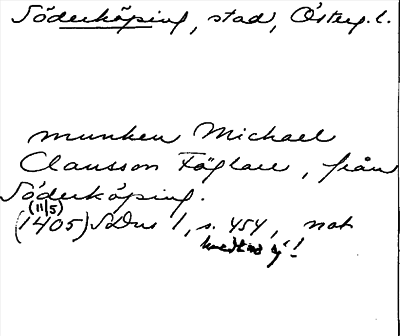 Söderköping, stad, Österg.l.
munken Michael
Clausson Föglare, från
Söderköping.
(11/5)
(1405) SDns 1, s. 454, not
ej!